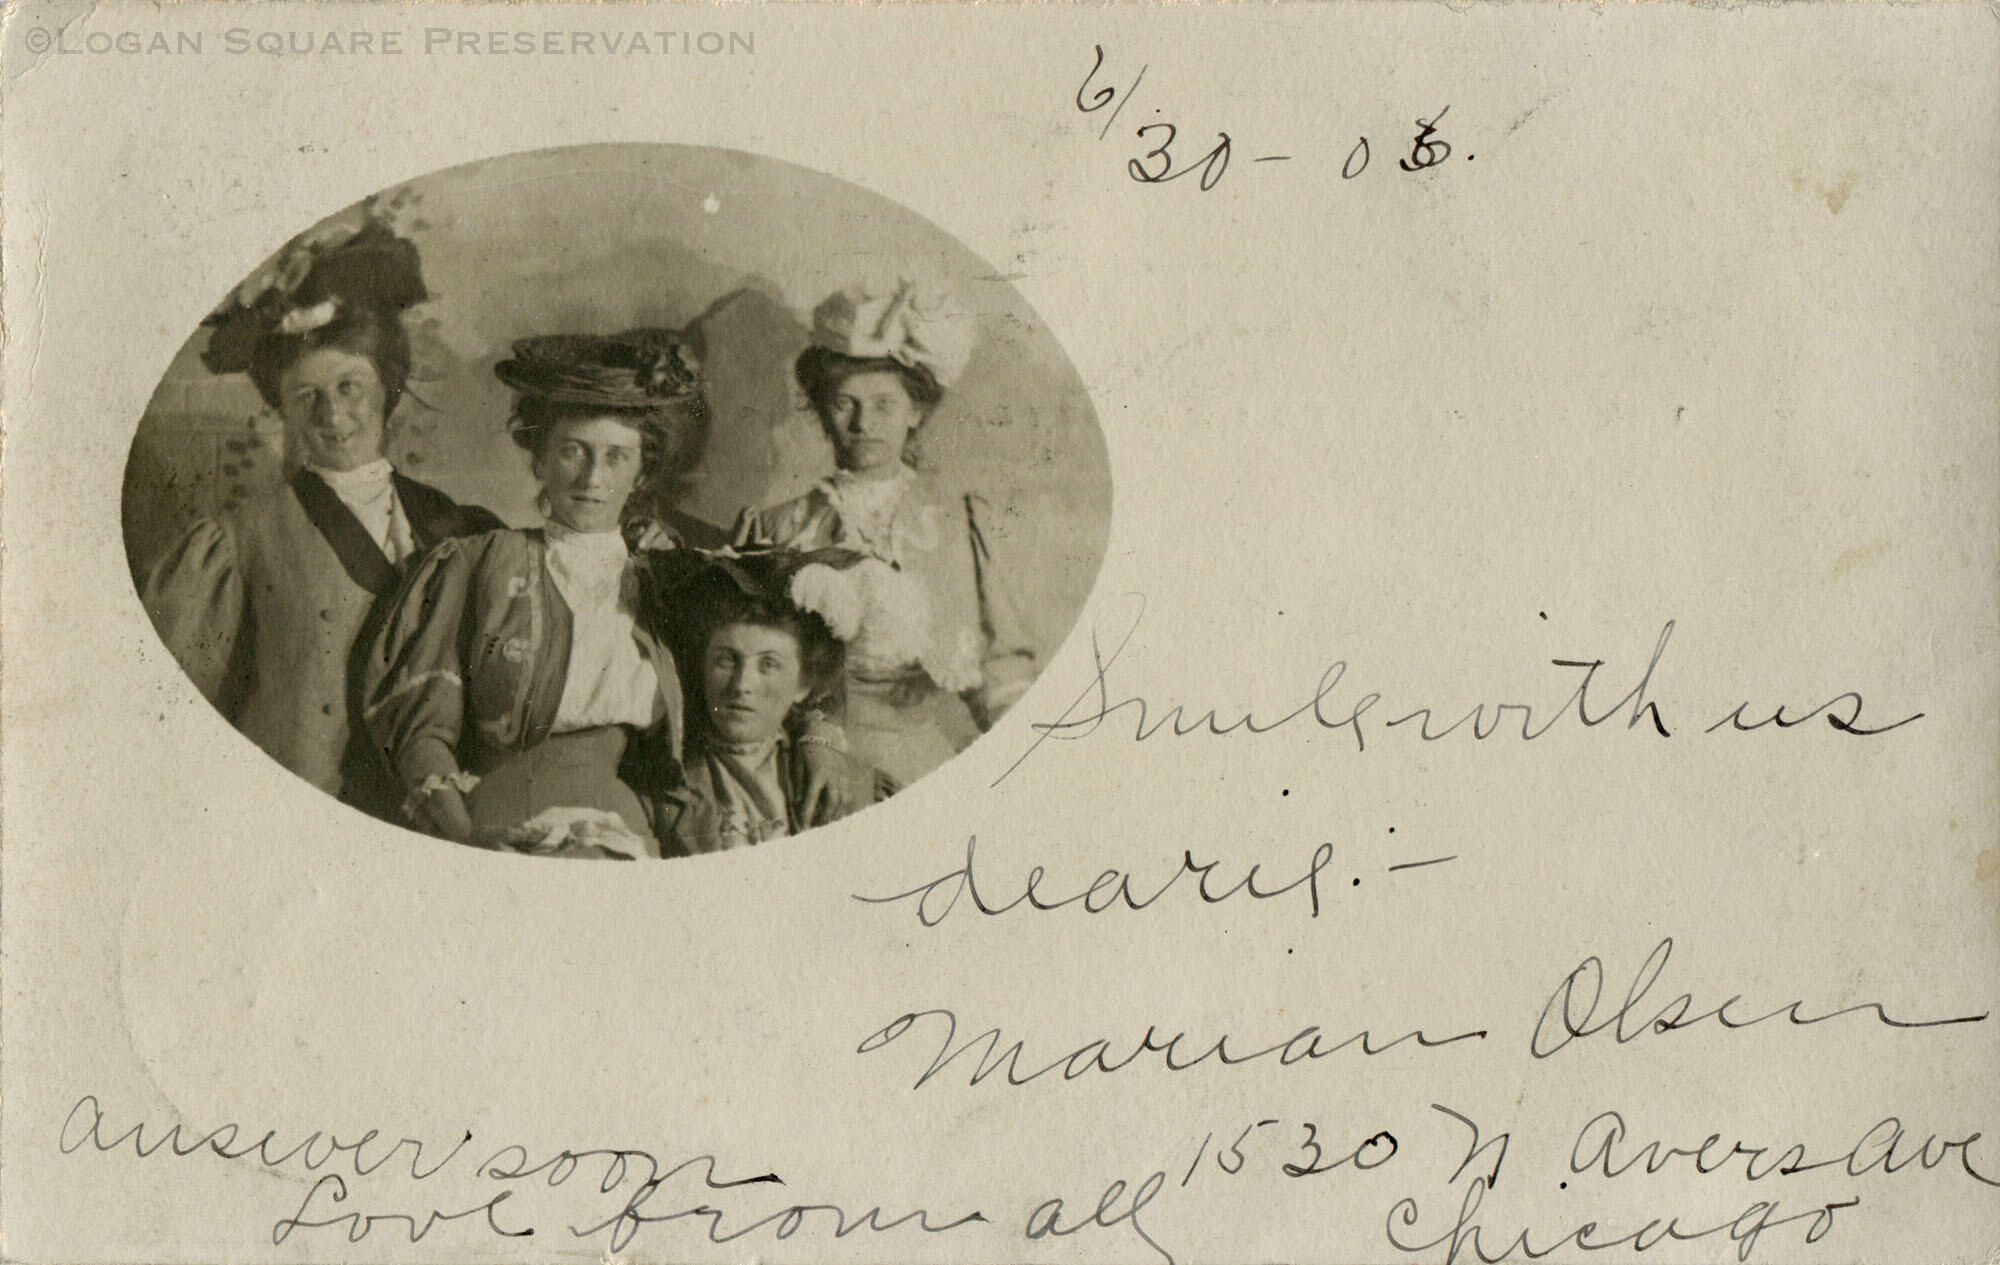 ©LOGAN SQUARE PRESERVATION
6/30-06.
Smile with us
dearie.-
Marian Olsen
1530 N Avers Ave
Chicago
answer soon
Love from all